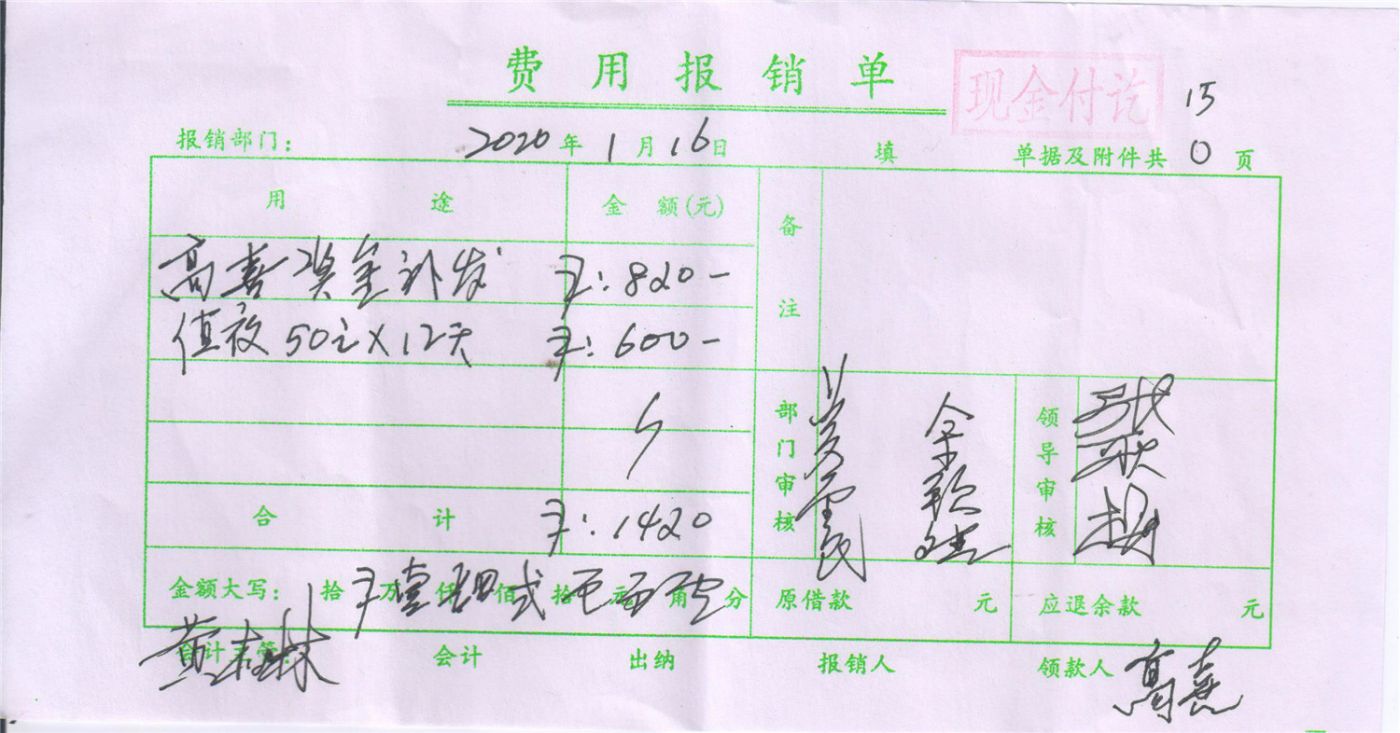 费用报销单
现金付讫
15
报销部门： 2020年1月16日 填 单据及附件共0页
用途 金额(元) 备注
高喜奖金补发 ¥:820-
值夜50元×12天 ¥:600-
部门审核 领导审核
合计 ¥:1420
金额大写： 拾 万 仟 佰 拾 元 角 分 原借款 元 应退余款 元
会计主管 会计 出纳 报销人 领款人 高喜